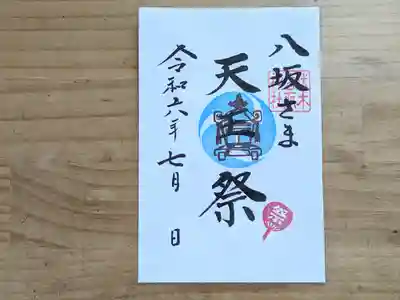 八坂さま
天王祭
令和六年 七月 日
祭